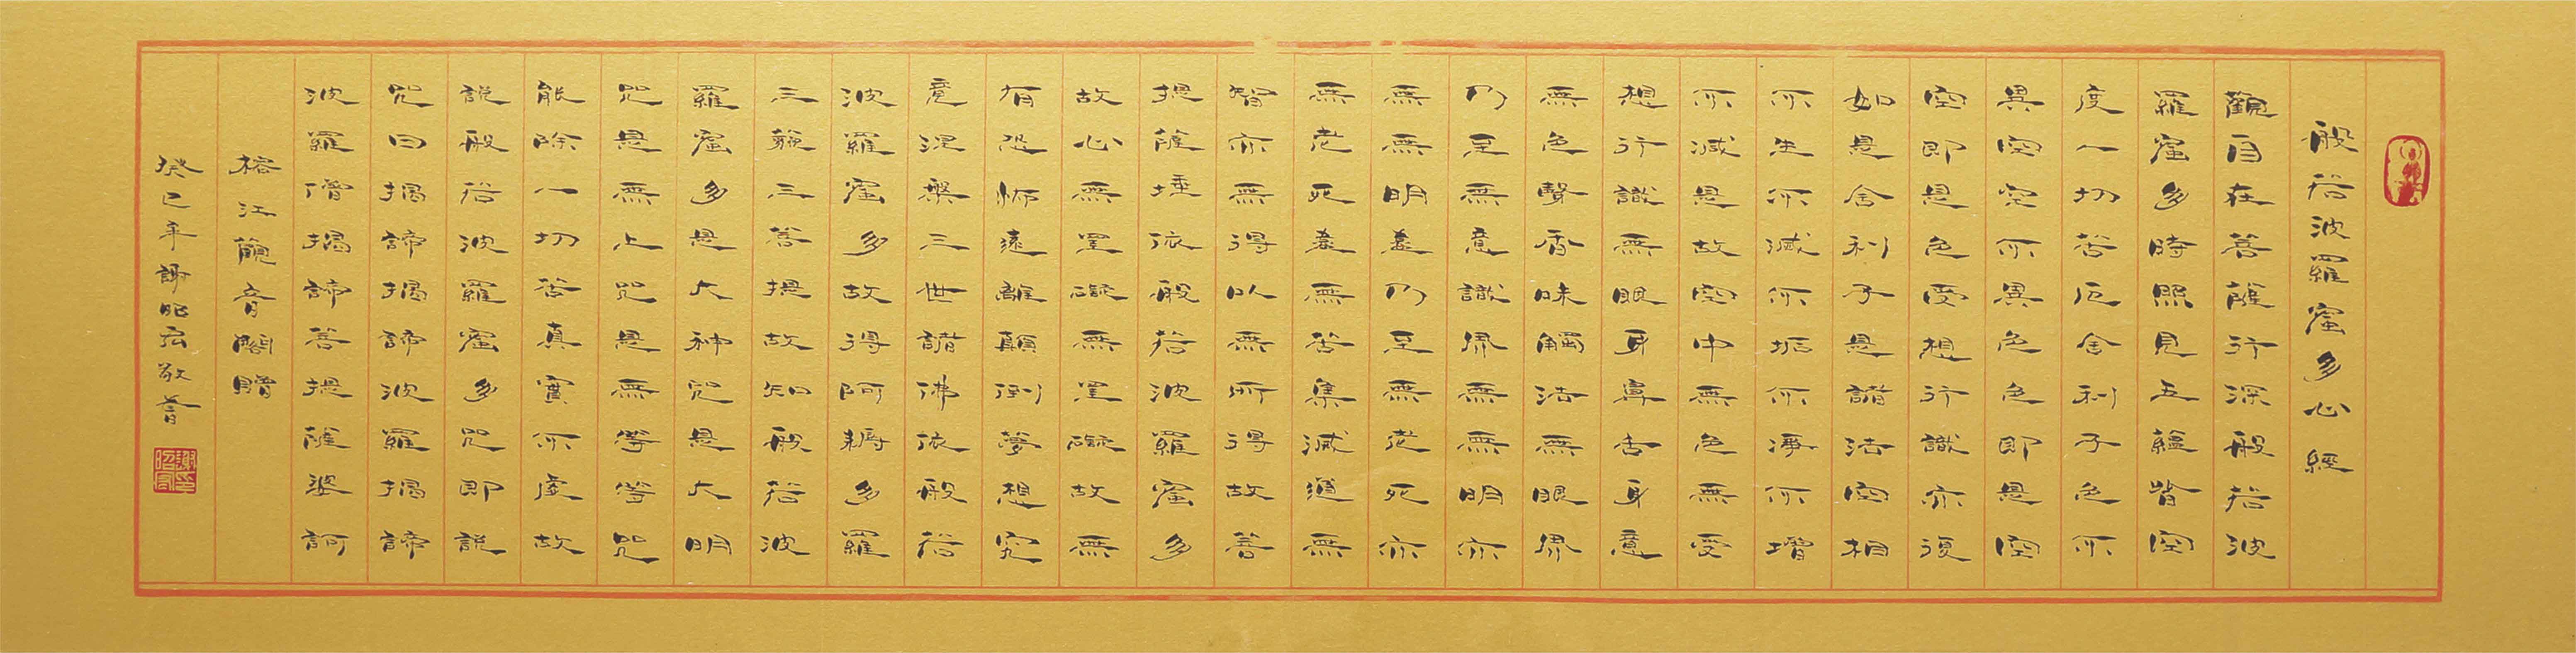 般若波羅蜜多心經
觀自在菩薩行深般若波
羅蜜多時照見五蘊皆空
度一切苦厄舍利子色不
異空空不異色色即是空
空即是色受想行識亦復
如是舍利子是諸法空相
不生不滅不垢不淨不增
不減是故空中無色無受
想行識無眼耳鼻舌身意
無色聲香味觸法無眼界
乃至無意識界無無明亦
無無明盡乃至無老死亦
無老死盡無苦集滅道無
智亦無得以無所得故菩
提薩埵依般若波羅蜜多
故心無罣礙無罣礙故無
有恐怖遠離顛倒夢想究
竟涅槃三世諸佛依般若
波羅蜜多故得阿耨多羅
三藐三菩提故知般若波
羅蜜多是大神咒是大明
咒是無上咒是無等等咒
能除一切苦真實不虛故
說般若波羅蜜多咒即說
咒曰揭諦揭諦波羅揭諦
波羅僧揭諦菩提薩婆訶
榕江觀音閣贈
癸巳年謝昭宏敬書